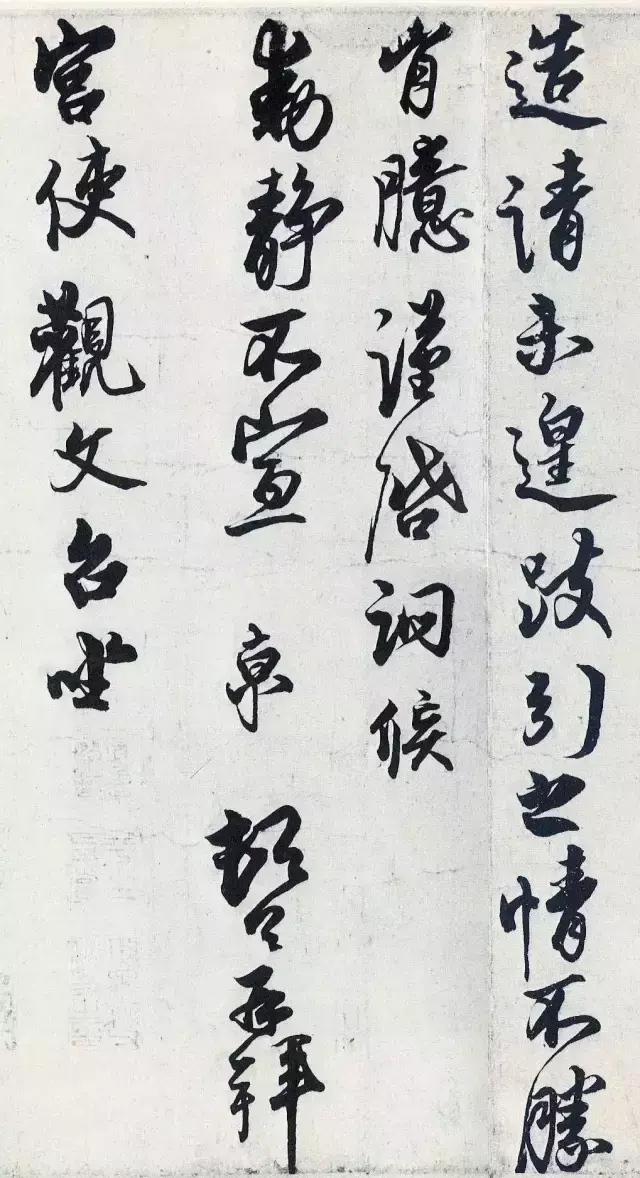 造請未遑跂引之情不勝
胷臆謹啓詗候
動靜不宣　京　頓首再拜
宮使觀文台坐